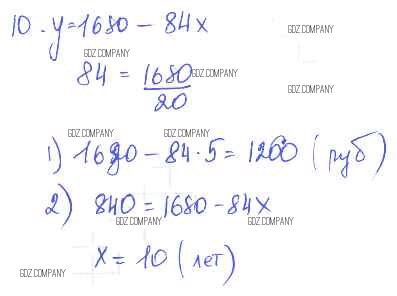 10. y=1680 - 84x
GDZ.COMPANY
GDZ.COMPANY
84 = 1680/20
GDZ.COMPANY
GDZ.COMPANY
GDZ.COMPANY GDZ.COMPANY
1) 1680 - 84·5 = 1260 (руб)
2) 840 = 1680 - 84x
GDZ.COMPANY GDZ.COMPANY
x = 10 (лет)
GDZ.COMPANY